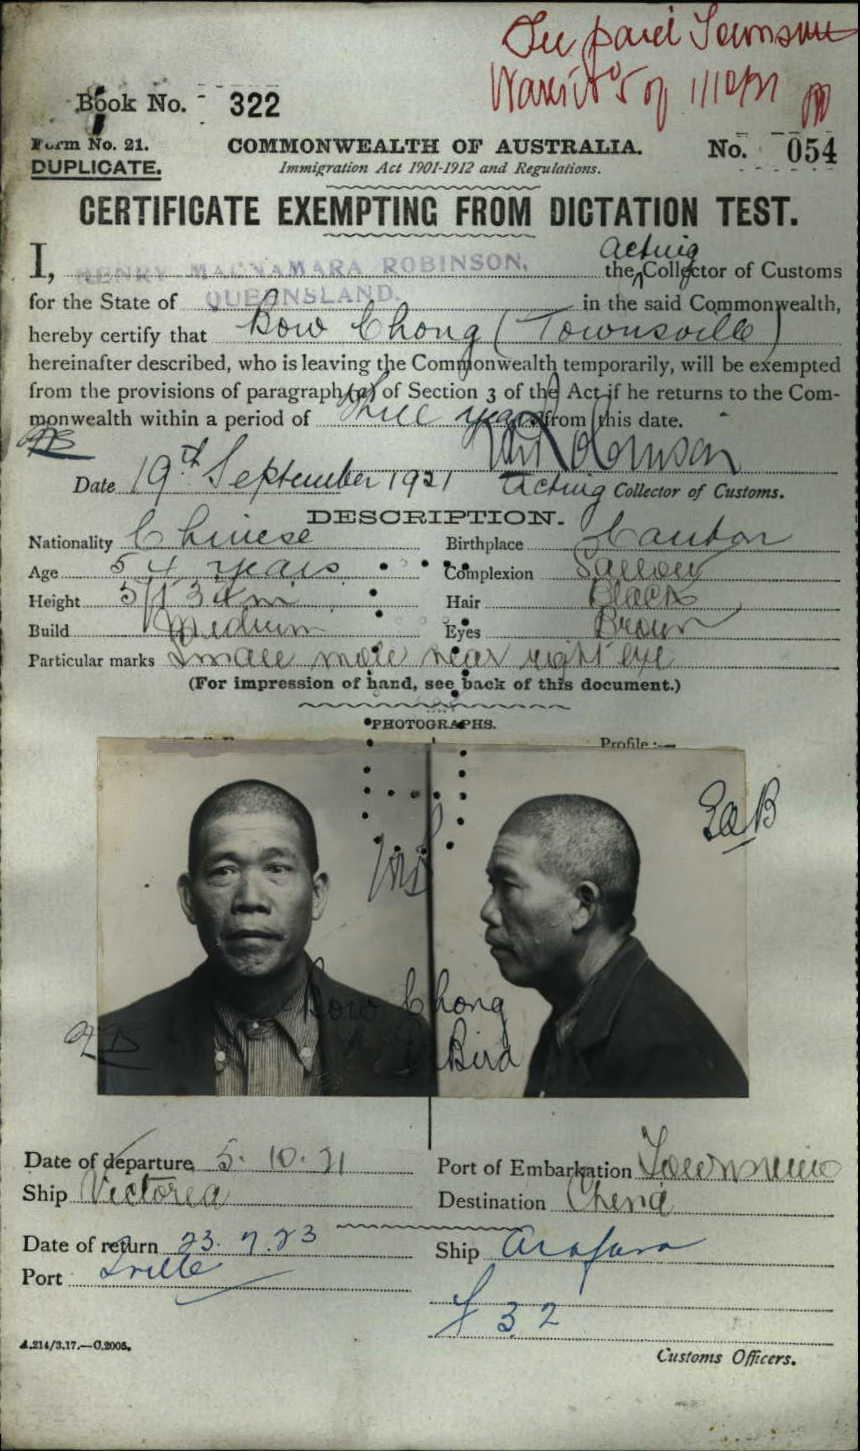 Fee paid Townsville
Warrt No 5 of 1/10/21
Book No. 322
Form No. 21.
COMMONWEALTH OF AUSTRALIA.
No. 054
DUPLICATE.
Immigration Act 1901-1912 and Regulations.
CERTIFICATE EXEMPTING FROM DICTATION TEST.
acting
I, HENRY MACNAMARA ROBINSON, the Collector of Customs
for the State of QUEENSLAND in the said Commonwealth,
hereby certify that Bow Chong (Townsville)
hereinafter described, who is leaving the Commonwealth temporarily, will be exempted
from the provisions of paragraph (a) of Section 3 of the Act if he returns to the Com-
monwealth within a period of Three years from this date.
Robinson
Date 19th September 1921 Acting Collector of Customs.
DESCRIPTION.
Nationality Chinese Birthplace Canton
Age 54 years Complexion Sallow
Height 5ft 3¼ in Hair Black
Build Medium Eyes Brown
Particular marks Small mole near right eye
(For impression of hand, see back of this document.)
PHOTOGRAPHS.
Profile :—
Bow Chong
Bird
Date of departure 5.10.21 Port of Embarkation Townsville
Ship Victoria Destination China
Date of return 23.7.23 Ship Arafura
Port Tville
32
A.214/3.17.—C.2005.
Customs Officers.